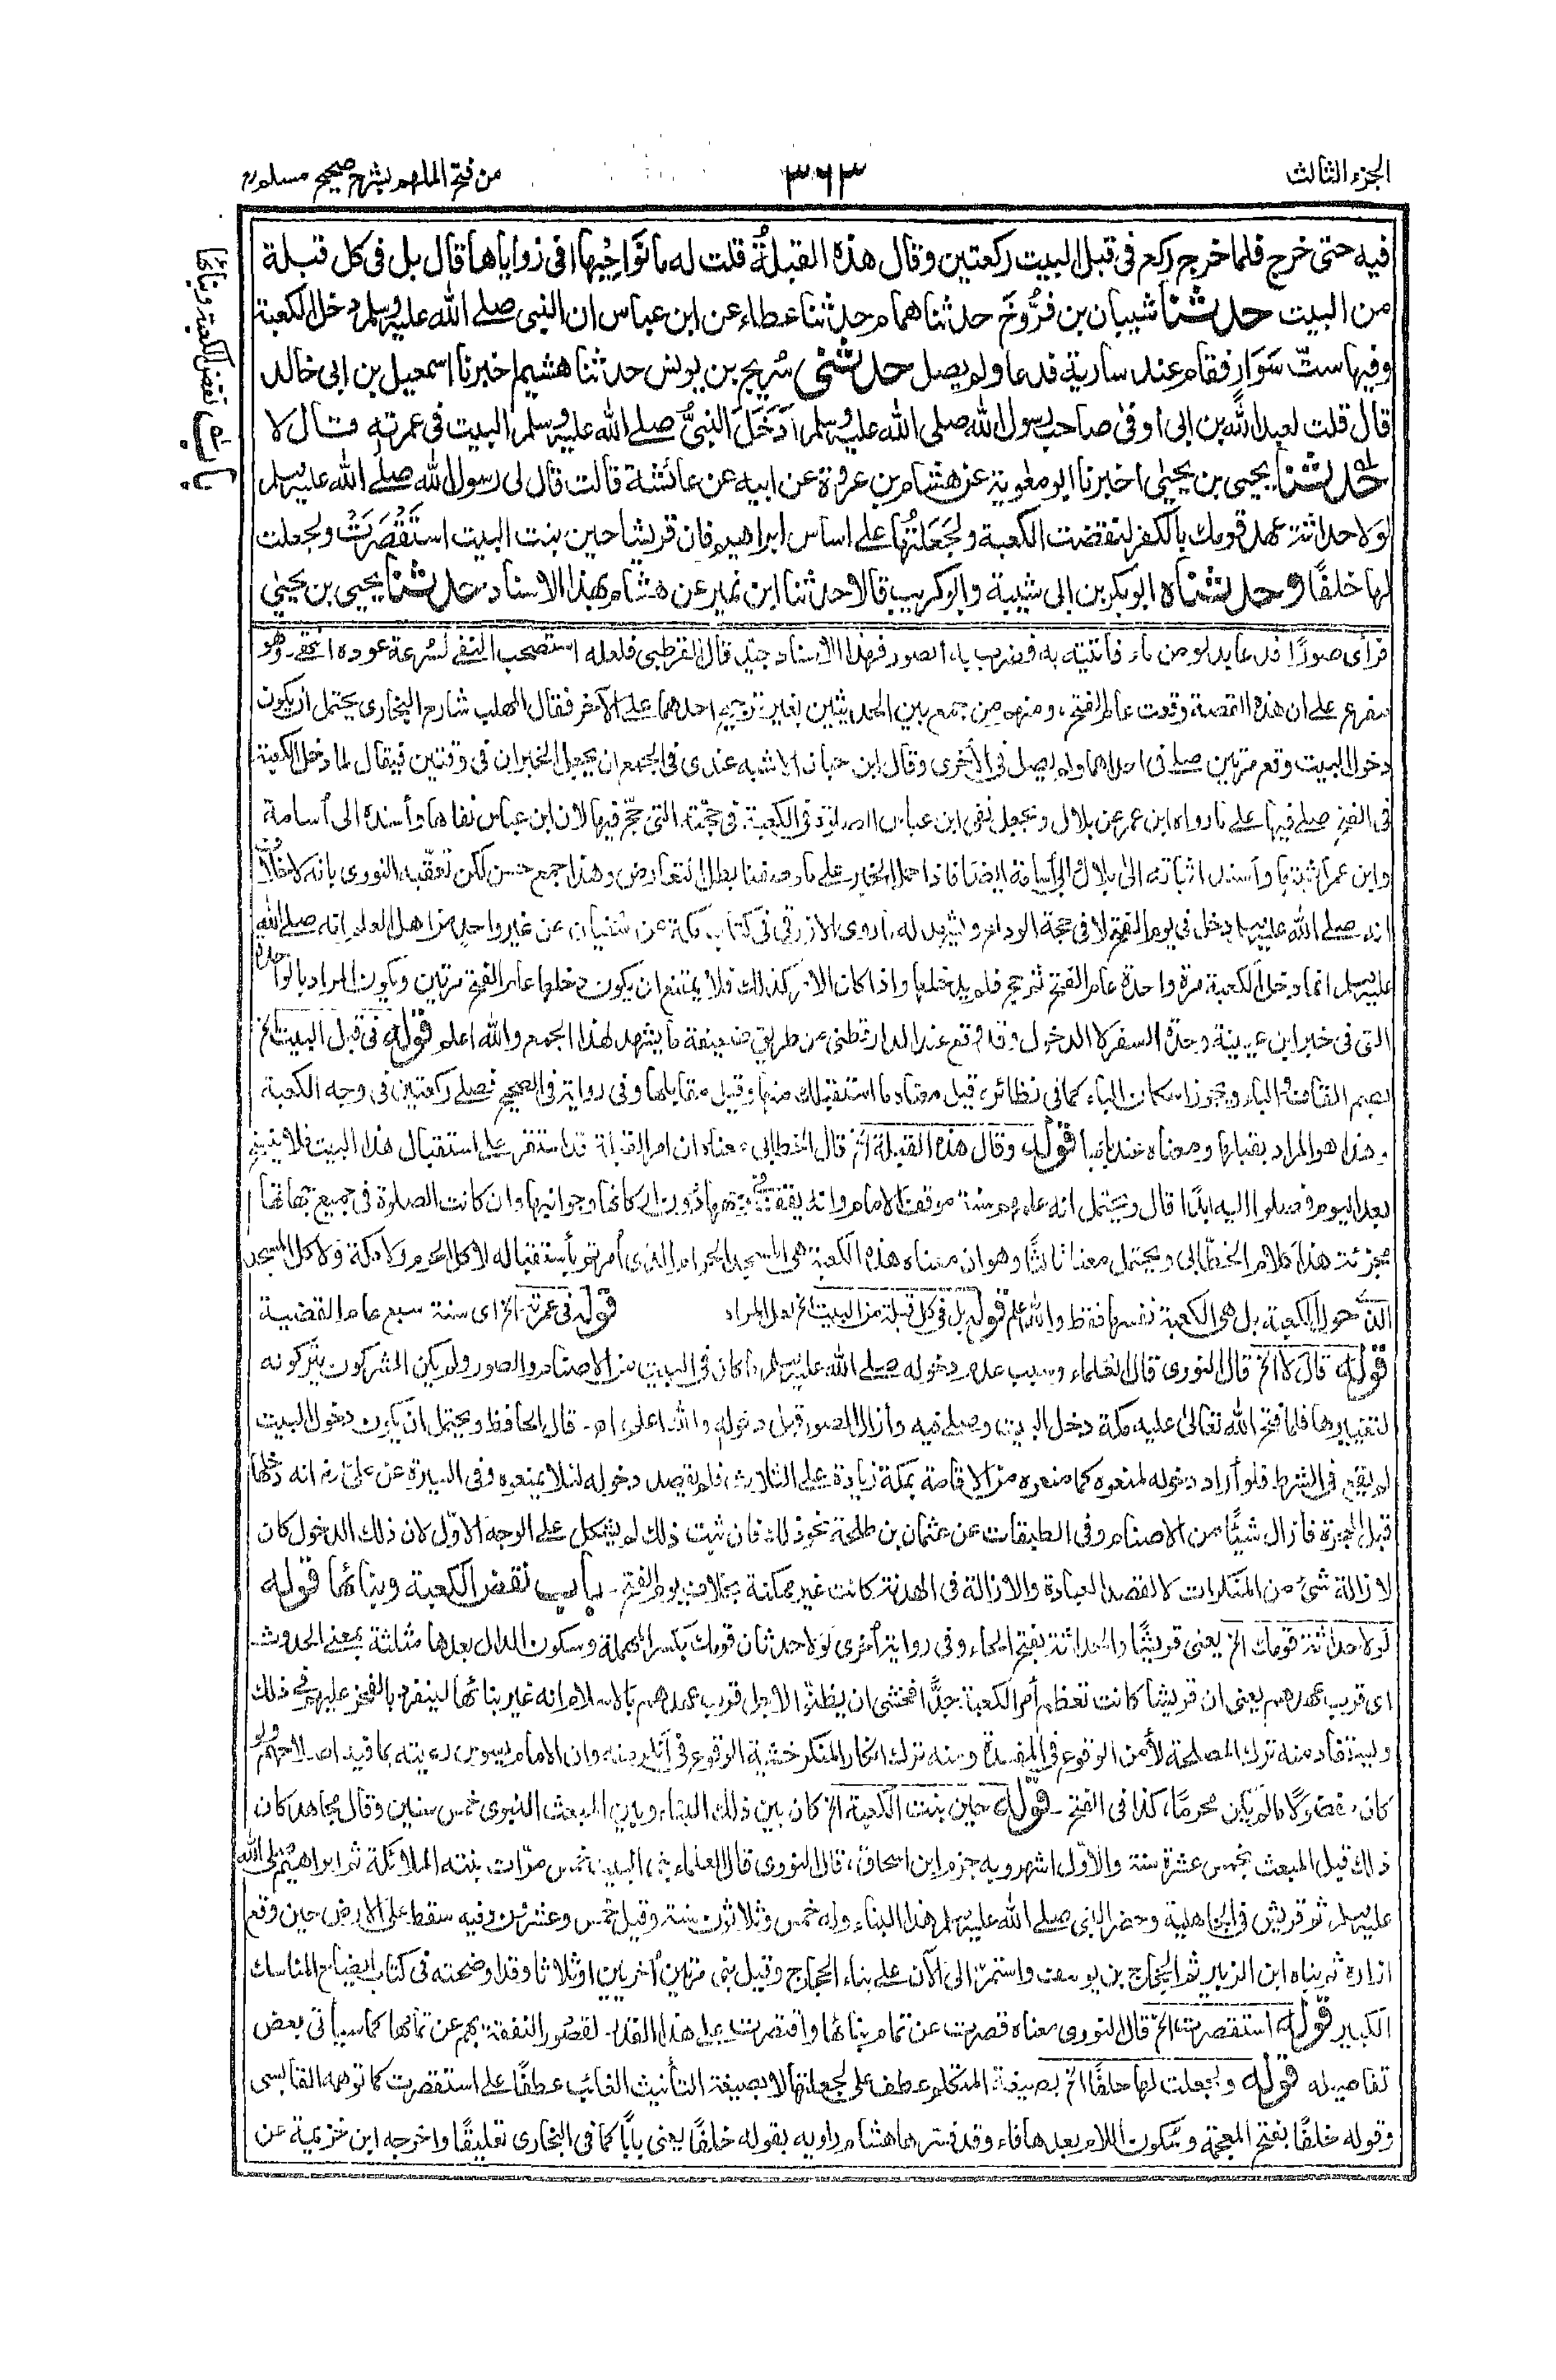 الجزء الثالث
٣٦٣
من فتح الملهم بشرح صحيح مسلم
باب نقض الكعبة وبنائها
فيه حتى خرج فلما خرج ركع فى قبل البيت ركعتين وقال هذه القبلة قلت له ما نواحيها افى زواياها قال بل فى كل قبلة
من البيت حدثنا شيبان بن فرّوخ حدثنا همام حدثنا عطاء عن ابن عباس ان النبى صلى الله عليه وسلم دخل الكعبة
وفيها ستّ سَوَارٍ فقام عند سارية فدعا ولم يصل حدثنى سُريج بن يونس حدثنا هشيم اخبرنا اسمعيل بن ابى خالد
قال قلت لعبد الله بن ابى أوفىٰ صاحب رسول الله صلى الله عليه وسلم أدَخَلَ النبىُّ صلى الله عليه وسلم البيت فى عمرته قال لا
حدثنا يحيى بن يحيىٰ اخبرنا ابو معٰوية عن هشام بن عروة عن ابيه عن عائشة قالت قال لى رسول الله صلى الله عليه وسلم
لولا حداثة عهد قومك بالكفر لنقضت الكعبة ولجَعَلتُها على اساس ابراهيم فان قريشا حين بنت البيت استَقْصَرَتْ ولجعلت
لها خلفًا وحدثناه ابو بكر بن ابى شيبة وابو كريب قالا حدثنا ابن نمير عن هشام بهذا الاسناد حدثنا يحيى بن يحيىٰ
فرأى صورًا فدعا بدلو من ماء فأتيته به فضرب به الصور فهذا الاسناد جيد قال القرطبى فلعله استصحب النفى لسرعة عوده انتهى وهو
مفرع على ان هذه القصة وقعت عام الفتح، ومنهم من جمع بين الحديثين بغير ترجيح احدهما على الآخر فقال المهلب شارح البخارى يحتمل ان يكون
دخول البيت وقع مرتين صلى فى احداهما ولم يصل فى الأخرى وقال ابن حبان الاشبه عندى فى الجمع ان يجعل الخبران فى وقتين فيقال لما دخل الكعبة
فى الفتح صلى فيها على ما رواه ابن عمر عن بلال ويجعل نفى ابن عباس الصلوة فى الكعبة فى حجّته التى حجّ فيها لان ابن عباس نفاها وأسنده الى أسامة
وابن عمر أثبتها وأسند اثباته الى بلال والى أسامة ايضًا فاذا حمل الخبر على ما وصفنا بطل التعارض وهذا جمع حسن لكن تعقّبه النووى بانه لا خلاف
انه صلى الله عليه وسلم دخل فى يوم الفتح لا فى حجة الوداع ويشهد له ما روى الازرقى فى كتاب مكة عن سفيان عن غير واحد من اهل العلم انه صلى الله
عليه وسلم انما دخل الكعبة مرة واحدة عام الفتح ثم حج فلم يدخلها واذا كان الامر كذلك فلا يمتنع ان يكون دخلها عام الفتح مرتين ويكون المراد بالواحدة
التى فى خبر ابن عيينة وحدة السفر لا الدخول وقد وقع عند الدارقطنى من طريق ضعيفة ما يشهد لهذا الجمع والله اعلم قوله فى قبل البيت الخ
بضم القاف والباء ويجوز اسكان الباء كما فى نظائره قيل معناه ما استقبلك منها وقيل مقابلها وفى رواية فى الصحيح فصلى ركعتين فى وجه الكعبة
وهذا هو المراد بقبلها ومعناه عند بابها قوله وقال هذه القبلة الخ قال الخطابى معناه ان امر القبلة قد استقر على استقبال هذا البيت فلا ينسخ
بعد اليوم فصلوا اليه ابدًا قال ويحتمل انه علمهم سنة موقف الامام وانه يقف فى وجهها دون اركانها وجوانبها وان كانت الصلوة فى جميع جهاتها
مجزئة هذا كلام الخطّابى ويحتمل معنا ثالثًا وهو ان معناه هذه الكعبة هى المسجد الحرام الذى أمرتم بأستقباله لا كل الحرم ولا مكة ولا كل المسجد
الذى حول الكعبة بل هى الكعبة نفسها فقط والله اعلم قوله بل فى كل قبلة من البيت الخ لعل المراد قوله فى عمرته الخ اى سنة سبع عام القضية
قوله قال لا الخ قال النووى قال العلماء وسبب عدم دخوله صلى الله عليه وسلم ما كان فى البيت من الاصنام والصور ولم يكن المشركون يتركونه
لتغييرها فلما فتح الله تعالىٰ عليه مكة دخل البيت وصلى فيه وأزال الصور قبل دخوله والله اعلم، اھ۔ قال الحافظ ويحتمل ان يكون دخول البيت
لم يقع فى الشرط فلو أراد دخوله لمنعوه كما منعوه من الاقامة بمكة زيادة على الثلاث فلم يقصد دخوله لئلا يمنعوه وفى السيرة عن على رض انه دخلها
قبل الهجرة فأزال شيئًا من الاصنام وفى الطبقات عن عثمان بن طلحة نحو ذلك فان ثبت ذلك لم يشكل على الوجه الاوّل لان ذلك الدخول كان
لازالة شئ من المنكرات لا لقصد العبادة والازالة فى الهدنة كانت غير ممكنة بخلاف يوم الفتح۔ باب نقض الكعبة وبنائها قوله
لولا حداثة قومك الخ يعنى قريشًا والحداثة بفتح الحاء وفى رواية أخرى لولا حدثان قومك بكسر المهملة وسكون الدال بعدها مثلثة بمعنى الحدوث
اى قرب عهدهم يعنى ان قريشا كانت تعظم أمر الكعبة جدًّا فخشى ان يظنّوا لاجل قرب عهدهم بالاسلام انه غير بنائها لينفرد بالفخر عليهم فى ذلك
ويستفاد منه ترك المصلحة لأمن الوقوع فى المفسدة ومنه ترك انكار المنكر خشية الوقوع فى أنكر منه وان الامام يسوس رعيته بما فيه اصلاحهم ولو
كان مفضولًا ما لم يكن محرمًا، كذا فى الفتح۔ قوله حين بنت الكعبة الخ كان بين ذلك البناء وبين المبعث النبوى خمس سنين وقال مجاهد كان
ذلك قبل المبعث بخمس عشرة سنة والأوّل اشهر وبه جزم ابن اسحاق، قال النووى قال العلماء بنى البيت خمس مرّات بنته الملائكة ثم ابراهيم صلى الله
عليه وسلم ثم قريش فى الجاهلية وحضر النبى صلى الله عليه وسلم هذا البناء وله خمس وثلاثون سنة وقيل خمس وعشرون وفيه سقط على الارض حين وقع
ازاره ثم بناه ابن الزبير ثم الحجاج بن يوسف واستمرّ الى الآن على بناء الحجاج وقيل بنى مرتين أخريين او ثلاثا وقد اوضحته فى كتاب ايضاح المناسك
الكبير قوله استقصرت الخ قال النووى معناه قصرت عن تمام بنائها واقتصرت على هذا القدر لقصور النفقة بهم عن تمامها كما سيأتى بعض
تفاصيله قوله ولجعلت لها خلفًا الخ بصيغة المتكلم عطف على لجعلتها لا بصيغة التأنيث الغائب عطفًا على استقصرت كما توهمه القابسى
وقوله خلفًا بفتح المعجمة وسكون اللام بعدها فاء وقد فسّرها هشام راويه بقوله خلفًا يعنى بابًا كما فى البخارى تعليقًا واخرجه ابن خزيمة عن